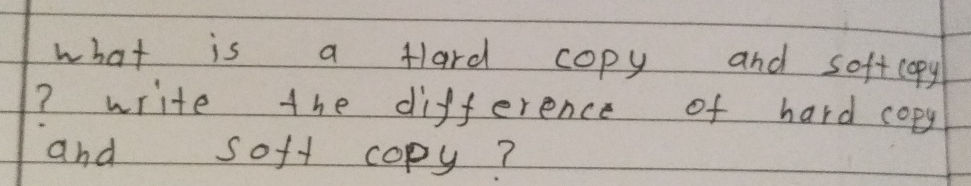 what is a Hard copy and soft copy
? write the difference of hard copy
and soft copy ?